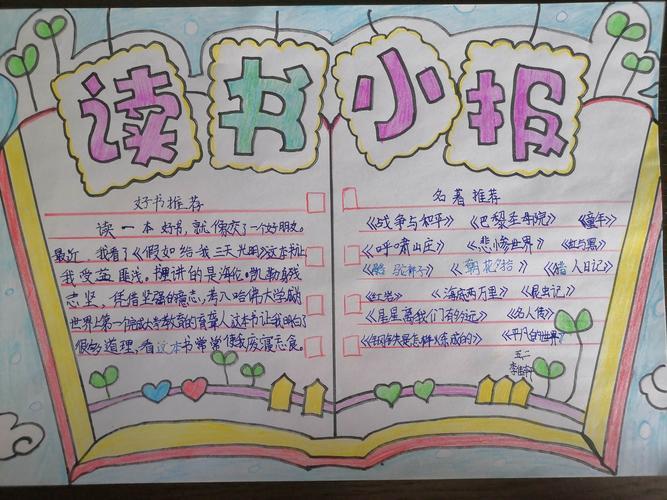 读书小报
好书推荐
读一本好书,就像交了一个好朋友。
最近,我看了《假如给我三天光明》这本书让
我受益匪浅。书里讲的是海伦·凯勒身残
志坚,凭借坚强的意志,考入哈佛大学成
世界上第一个完成大学教育的盲聋人这本书让我明白了
很多道理,看这本书常常使我废寝忘食。
名著推荐
《战争与和平》 《巴黎圣母院》 《童年》
《呼啸山庄》 《悲惨世界》 《红与黑》
《骆驼祥子》 《朝花夕拾》 《猎人日记》
《红岩》 《海底两万里》 《昆虫记》
《星星离我们有多远》 《名人传》
《钢铁是怎样炼成的》 《平凡的世界》
五二